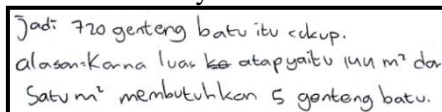 Jadi 720 genteng batu itu cukup.
alasan: Karna luas ke atap yaitu 144 m² dan
Satu m² membutuhkan 5 genteng batu.